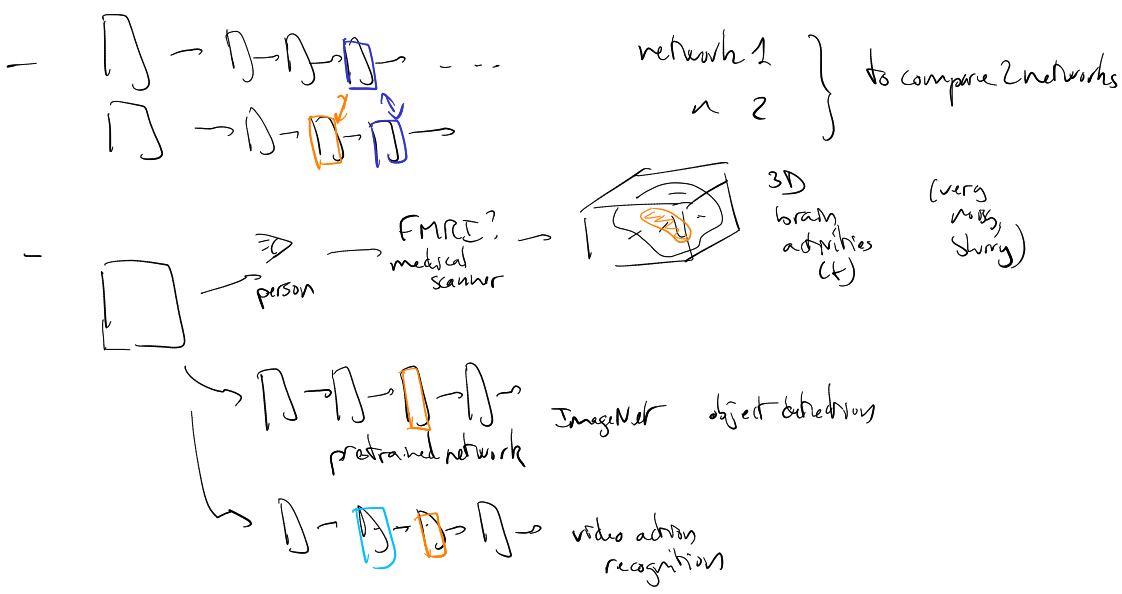 network 1
" 2
to compare 2 networks
FMRI?
medical
scanner
person
3D
brain
activities
(t)
(very
noisy,
blurry)
ImageNet object detection
pretrained network
video action
recognition